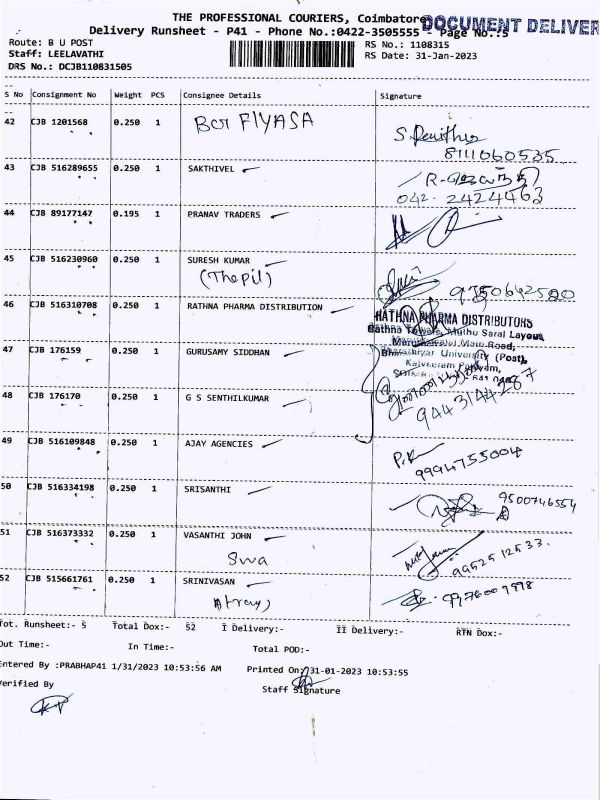 THE PROFESSIONAL COURIERS, Coimbatore
DOCUMENT DELIVER
Delivery Runsheet - P41 - Phone No.:0422-3505555 - Page No.:5
Route: B U POST
RS No.: 1108315
Staff: LEELAVATHI
RS Date: 31-Jan-2023
DRS No.: DCJB110831505
S No Consignment No Weight PCS Consignee Details Signature
42 CJB 1201568 0.250 1
8111060535
43 CJB 516289655 0.250 1 SAKTHIVEL
042-2424463
44 CJB 89177147 0.195 1 PRANAV TRADERS
45 CJB 516230960 0.250 1 SURESH KUMAR
(Thepil) 9750642520
46 CJB 516310708 0.250 1 RATHNA PHARMA DISTRIBUTION
RATHNA PHARMA DISTRIBUTORS
Rathna Towers, Muthu Saral Layout,
Main Road,
47 CJB 176159 0.250 1 GURUSAMY SIDDHAN
University (Post),
48 CJB 176170 0.250 1 G S SENTHILKUMAR
9443144287
49 CJB 516109848 0.250 1 AJAY AGENCIES
P.K
9994755004
50 CJB 516334198 0.250 1 SRISANTHI
9500746554
51 CJB 516373332 0.250 1 VASANTHI JOHN
Swa 9952512533.
52 CJB 515661761 0.250 1 SRINIVASAN
Tot. Runsheet:- 5 Total Dox:- 52 I Delivery:- II Delivery:- RTN Dox:-
Out Time:- In Time:- Total POD:-
Entered By :PRABHAP41 1/31/2023 10:53:56 AM Printed On:31-01-2023 10:53:55
Verified By
Staff Signature